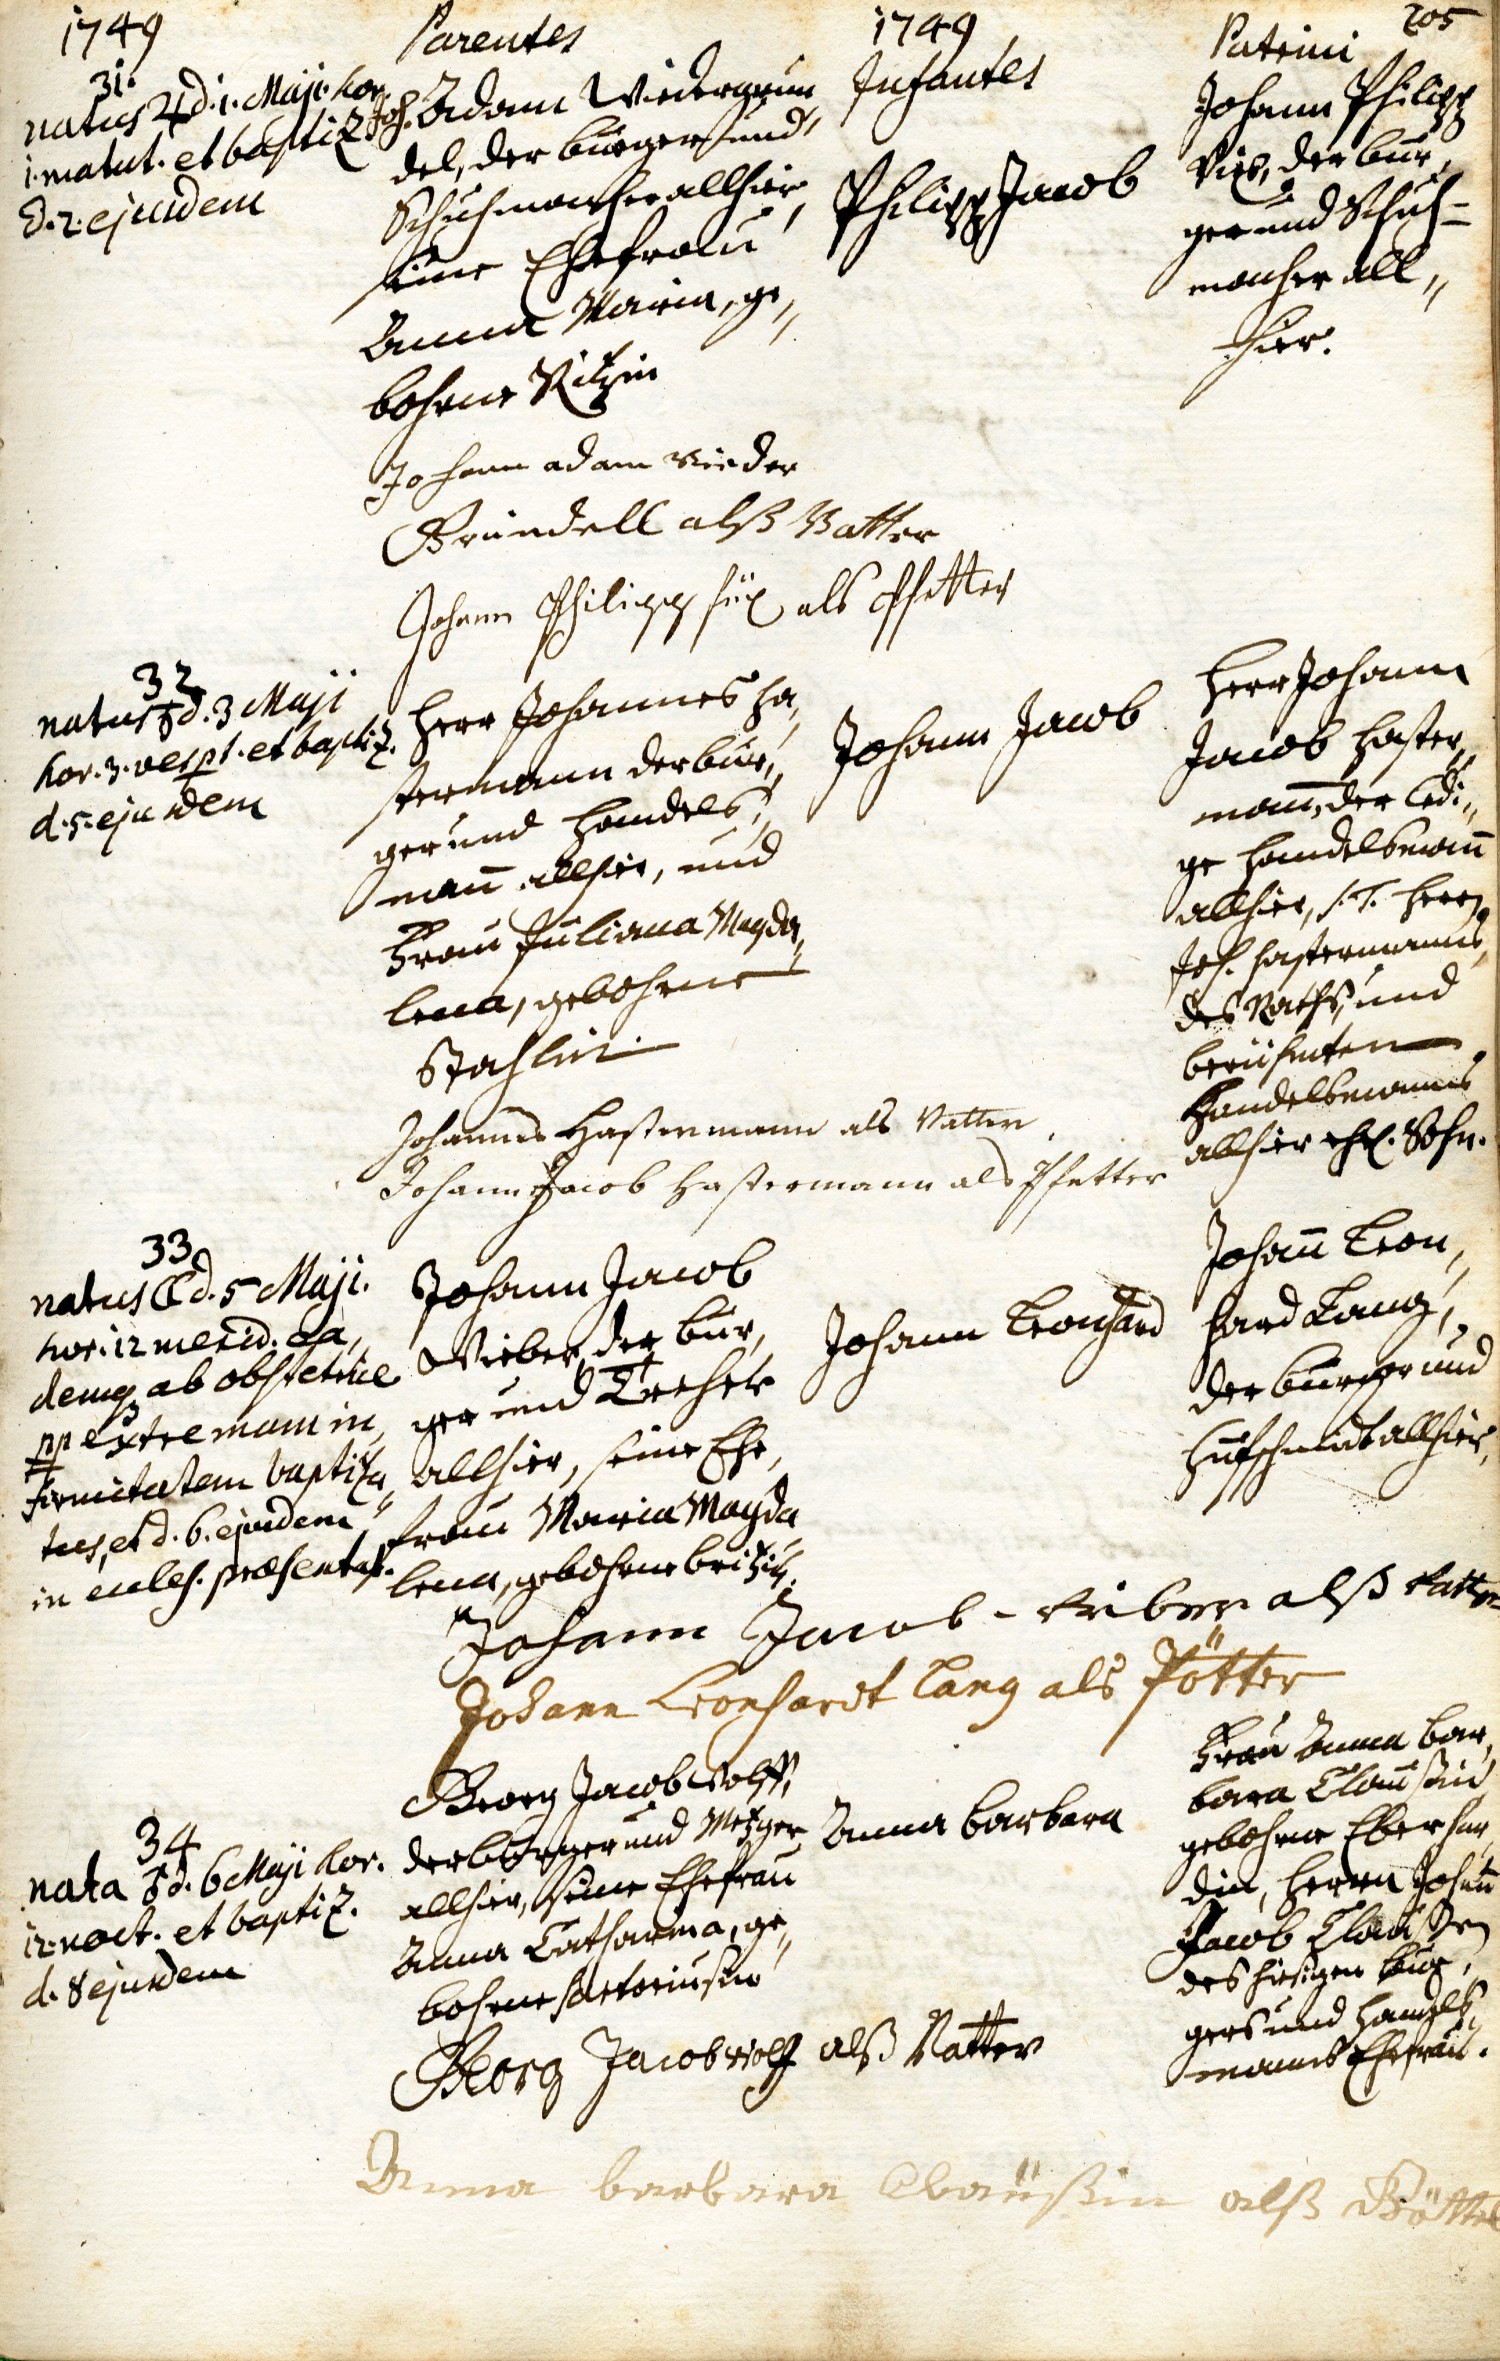 1749
Parentes
1749
Infantes
Patrini
205
31.
natus ♃ d. 1. Maji. hor.
1. matut. et baptiz.
d. 2. ejusdem
Joh. Adam Wiedergrün
del, der burger und
Schuhmacher allhier,
seine Ehefrau
Anna Maria, ge„
bohrne Ritzin
Philipp Jacob
Johann Philipp
der bur„
ger und Schuh=
macher all„
hier.
Johann adam wieder
Gründell alß Vatter
Johann Philipp als Pfetter
32
natus ♄ d. 3 Maji
hor. 3. vespt. et baptiz.
d. 5. ejusdem
Herr Johannes Ha„
stermann der bur„
ger und Handels„
mañ allhier, und
Frau Juliana Magda„
lena, gebohrne
Stahlin.
Johann Jacob
Herr Johann
Jacob Haster„
mann, der ledi„
ge Handelsmañ
allhier, s. T. Herrn
Joh. Hastermanns,
des Raths, und
berühmten
Handelsmanns
allhier ehl. Sohn.
Johannes Hastermann als Vatter.
Johann Jacob Hastermann als Pfetter
33
natus ☾ d. 5 Maji.
hor. 12 merid. ea„
demq ab obstetrice
pp extremam in„
firmitatem baptiza„
tus, et d. 6. ejusdem
in eccles. præsentat.
Johann Jacob
Wieber, der bur„
ger und
allhier, seine Ehe„
frau Maria Magda
lena, gebohrne Britzin.
Johann Leonhard
Johañ Leon„
hard Lang,
der burger und
Hufschmidt allhier.
Johann Jacob wiber alß Vatter
Johann Leonhardt Lang als Pötter
34
nata ♂ d. 6 Maji hor.
12. noct. et baptiz.
d. 8 ejusdem
Georg Jacob Wolff,
der burger und Metzger
allhier, seine Ehefrau
Anna Catharina, ge„
bohrne Sartoriusin
Anna Barbara
Frau Anna Bar„
bara Claussin
gebohrne Eberhar„
din, Herrn Johañ
Jacob Claussen
des hiesigen Bur„
gers und Handels„
manns Ehefrau.
Georg Jacob wolf alß Vatter
Anna barbara Claüßin alß Göttel